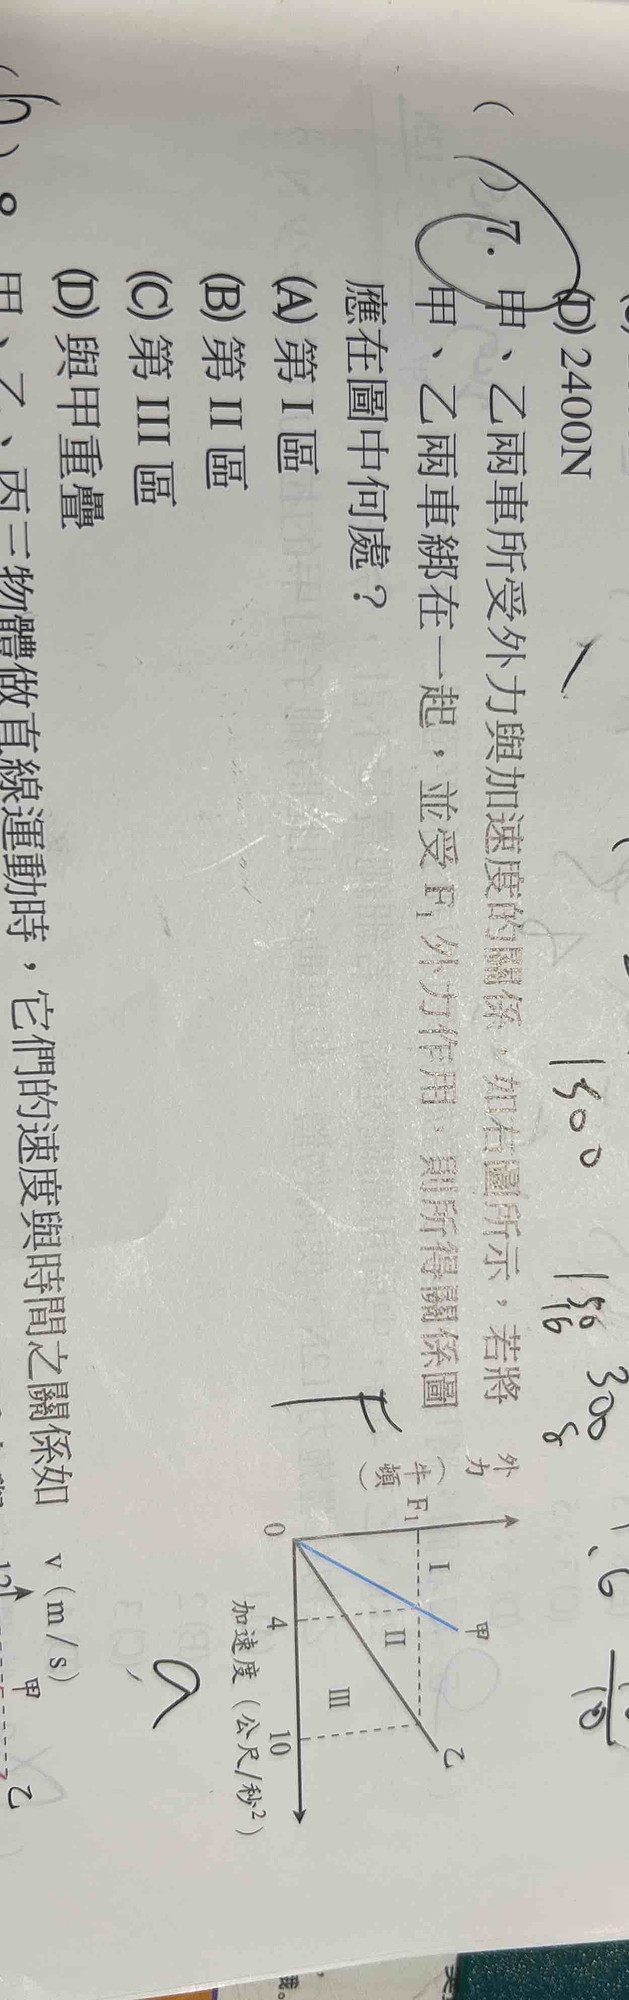 (D) 2400N
1500
300
7. 甲、乙兩車所受外力與加速度的關係,如右圖所示,若將
甲、乙兩車綁在一起,並受 F₁ 外力作用,則所得關係圖
應在圖中何處?
(A) 第 I 區
(B) 第 II 區
(C) 第 III 區
(D) 與甲重疊
F
外力(牛頓)
F₁
I
甲
II
III
乙
0
4
10
加速度(公尺/秒²)
a
甲、乙、丙三物體做直線運動時,它們的速度與時間之關係如
v (m/s)
12
甲
乙